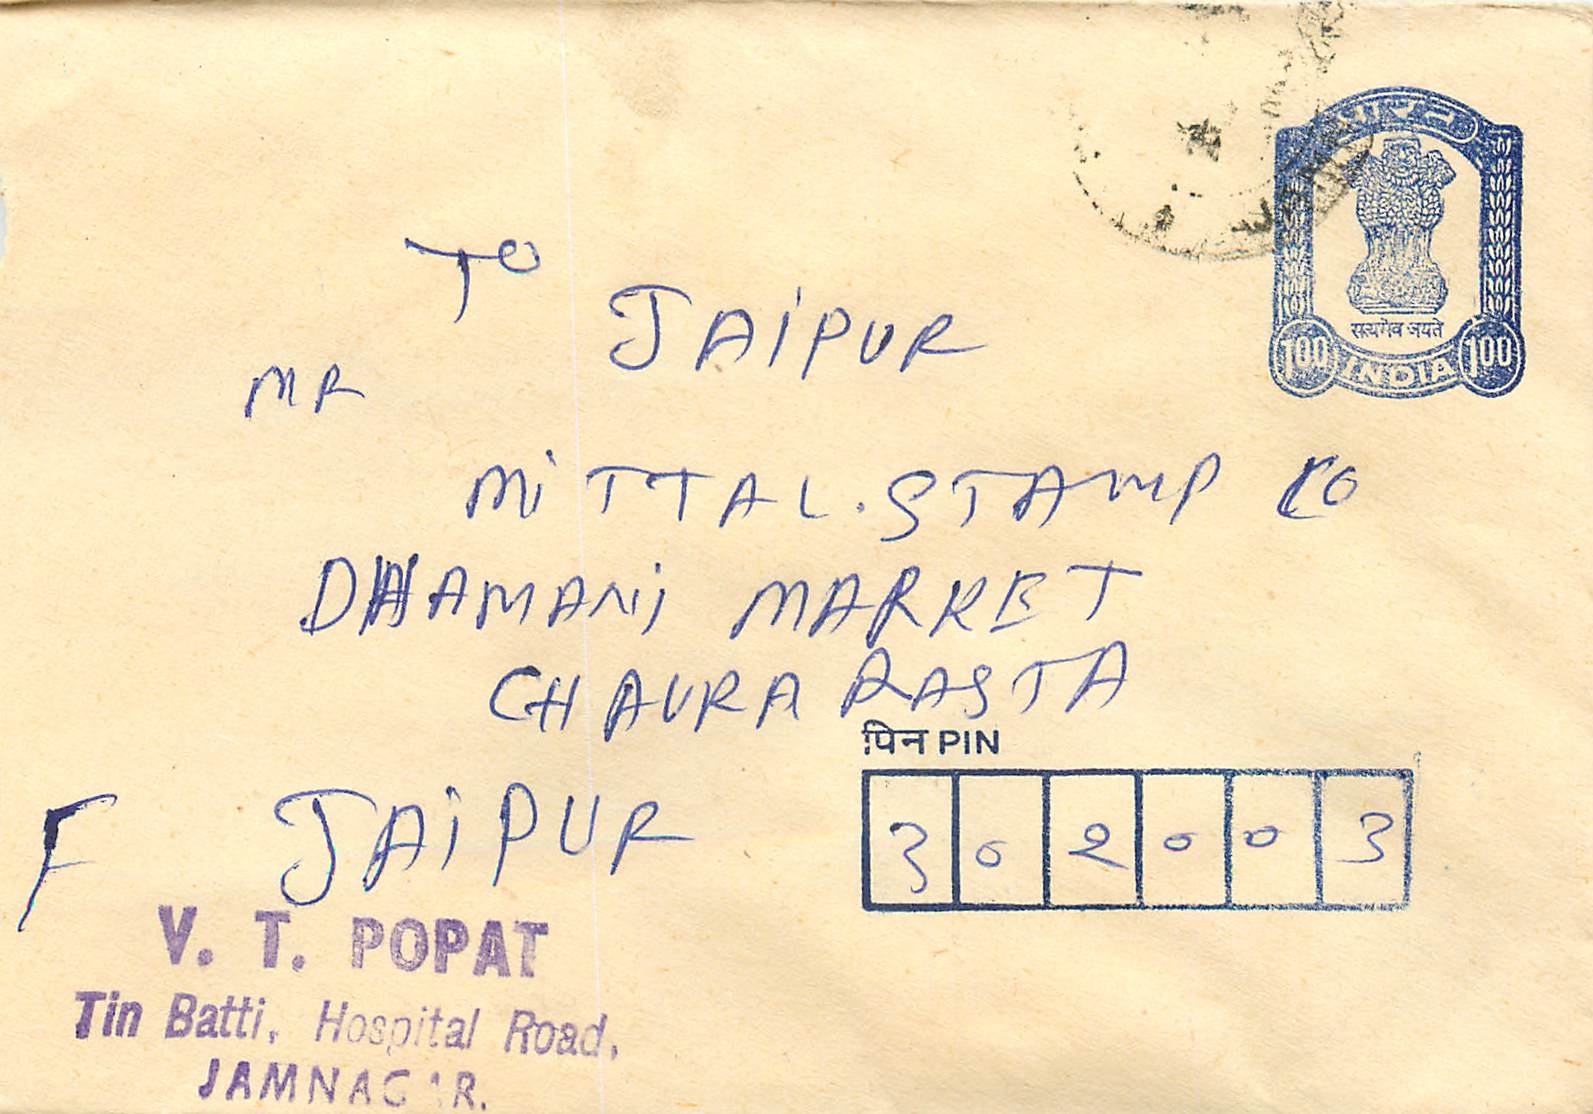 भारत
सत्यमेव जयते
1.00 INDIA 1.00
TO
JAIPUR
MR
MITTAL. STAMP CO
DHAMANI MARKET
CHAURA RASTA
पिन PIN
JAIPUR
३०२००३
F
V. T. POPAT
Tin Batti, Hospital Road,
JAMNAGAR.